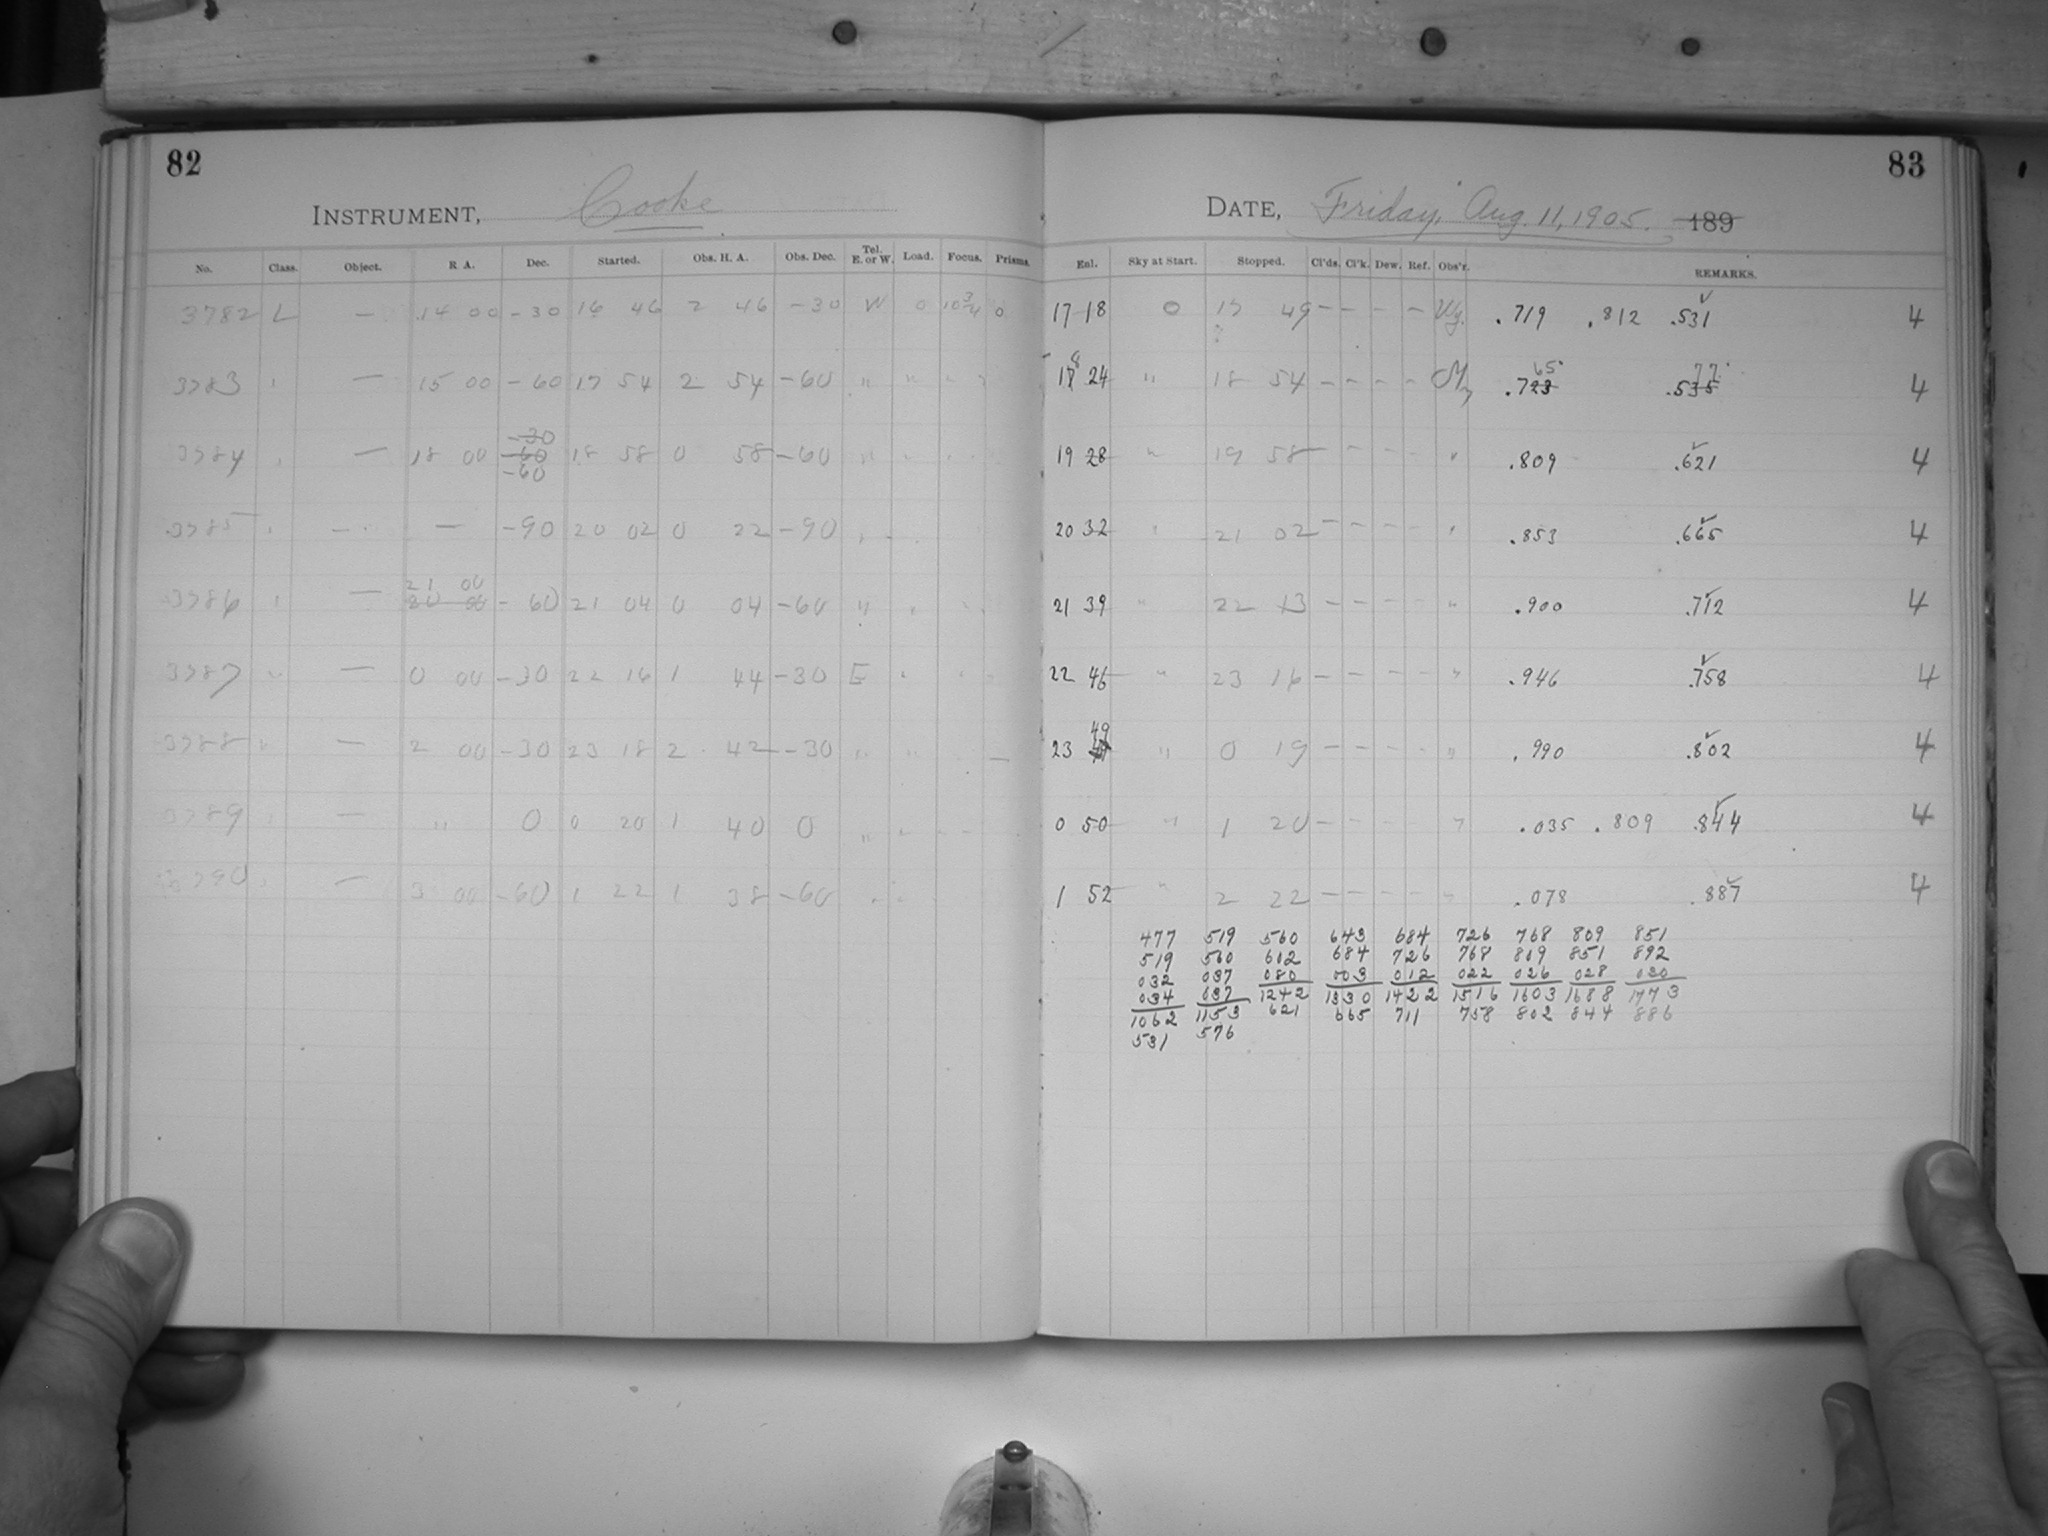 82
83
INSTRUMENT, Cooke
DATE, Friday, Aug. 11, 1905. 189
No. Class. Object. R A. Dec. Started. Obs. H. A. Obs. Dec. Tel. E. or W. Load. Focus. Prisms. Enl. Sky at Start. Stopped. Cl'ds. Cl'k. Dew. Ref. Obs'r. REMARKS.
3782 L — 14 00 -30 16 46 2 46 -30 W 0 10 3/4 0 17 18 0 17 49 — — — — .719 .812 .531 4
3783 — 15 00 -60 17 54 2 54 -60 " " 18 24 " 18 54 — — — — .723 65 .535 77 4
3784 — 18 00 -30 -60 -60 18 58 0 58 -60 " 19 28 " 19 58 — — — — " .809 .621 4
3785 — — -90 20 02 0 22 -90 20 32 21 02 — — — — " .853 .665 4
3786 — 21 00 20 00 -60 21 04 0 04 -60 " 21 39 " 22 13 — — — — " .900 .712 4
3787 " — 0 00 -30 22 16 1 44 -30 E 22 46 " 23 16 — — — — " .946 .758 4
3788 " — 2 00 -30 23 18 2 42 -30 " " 23 49 " 0 19 — — — — " .990 .802 4
3789 — " 0 0 20 1 40 0 " " 0 50 " 1 20 — — — — " .035 .809 .844 4
3790 — 3 00 -60 1 22 1 38 -60 " " 1 52 " 2 22 — — — — " .078 .887 4
477 519 560 643 684 726 768 809 851
519 560 602 684 726 768 809 851 892
032 037 080 003 012 022 026 028 030
034 037 1242 1330 1422 1516 1603 1688 1773
1062 1153 621 665 711 758 802 844 886
531 576